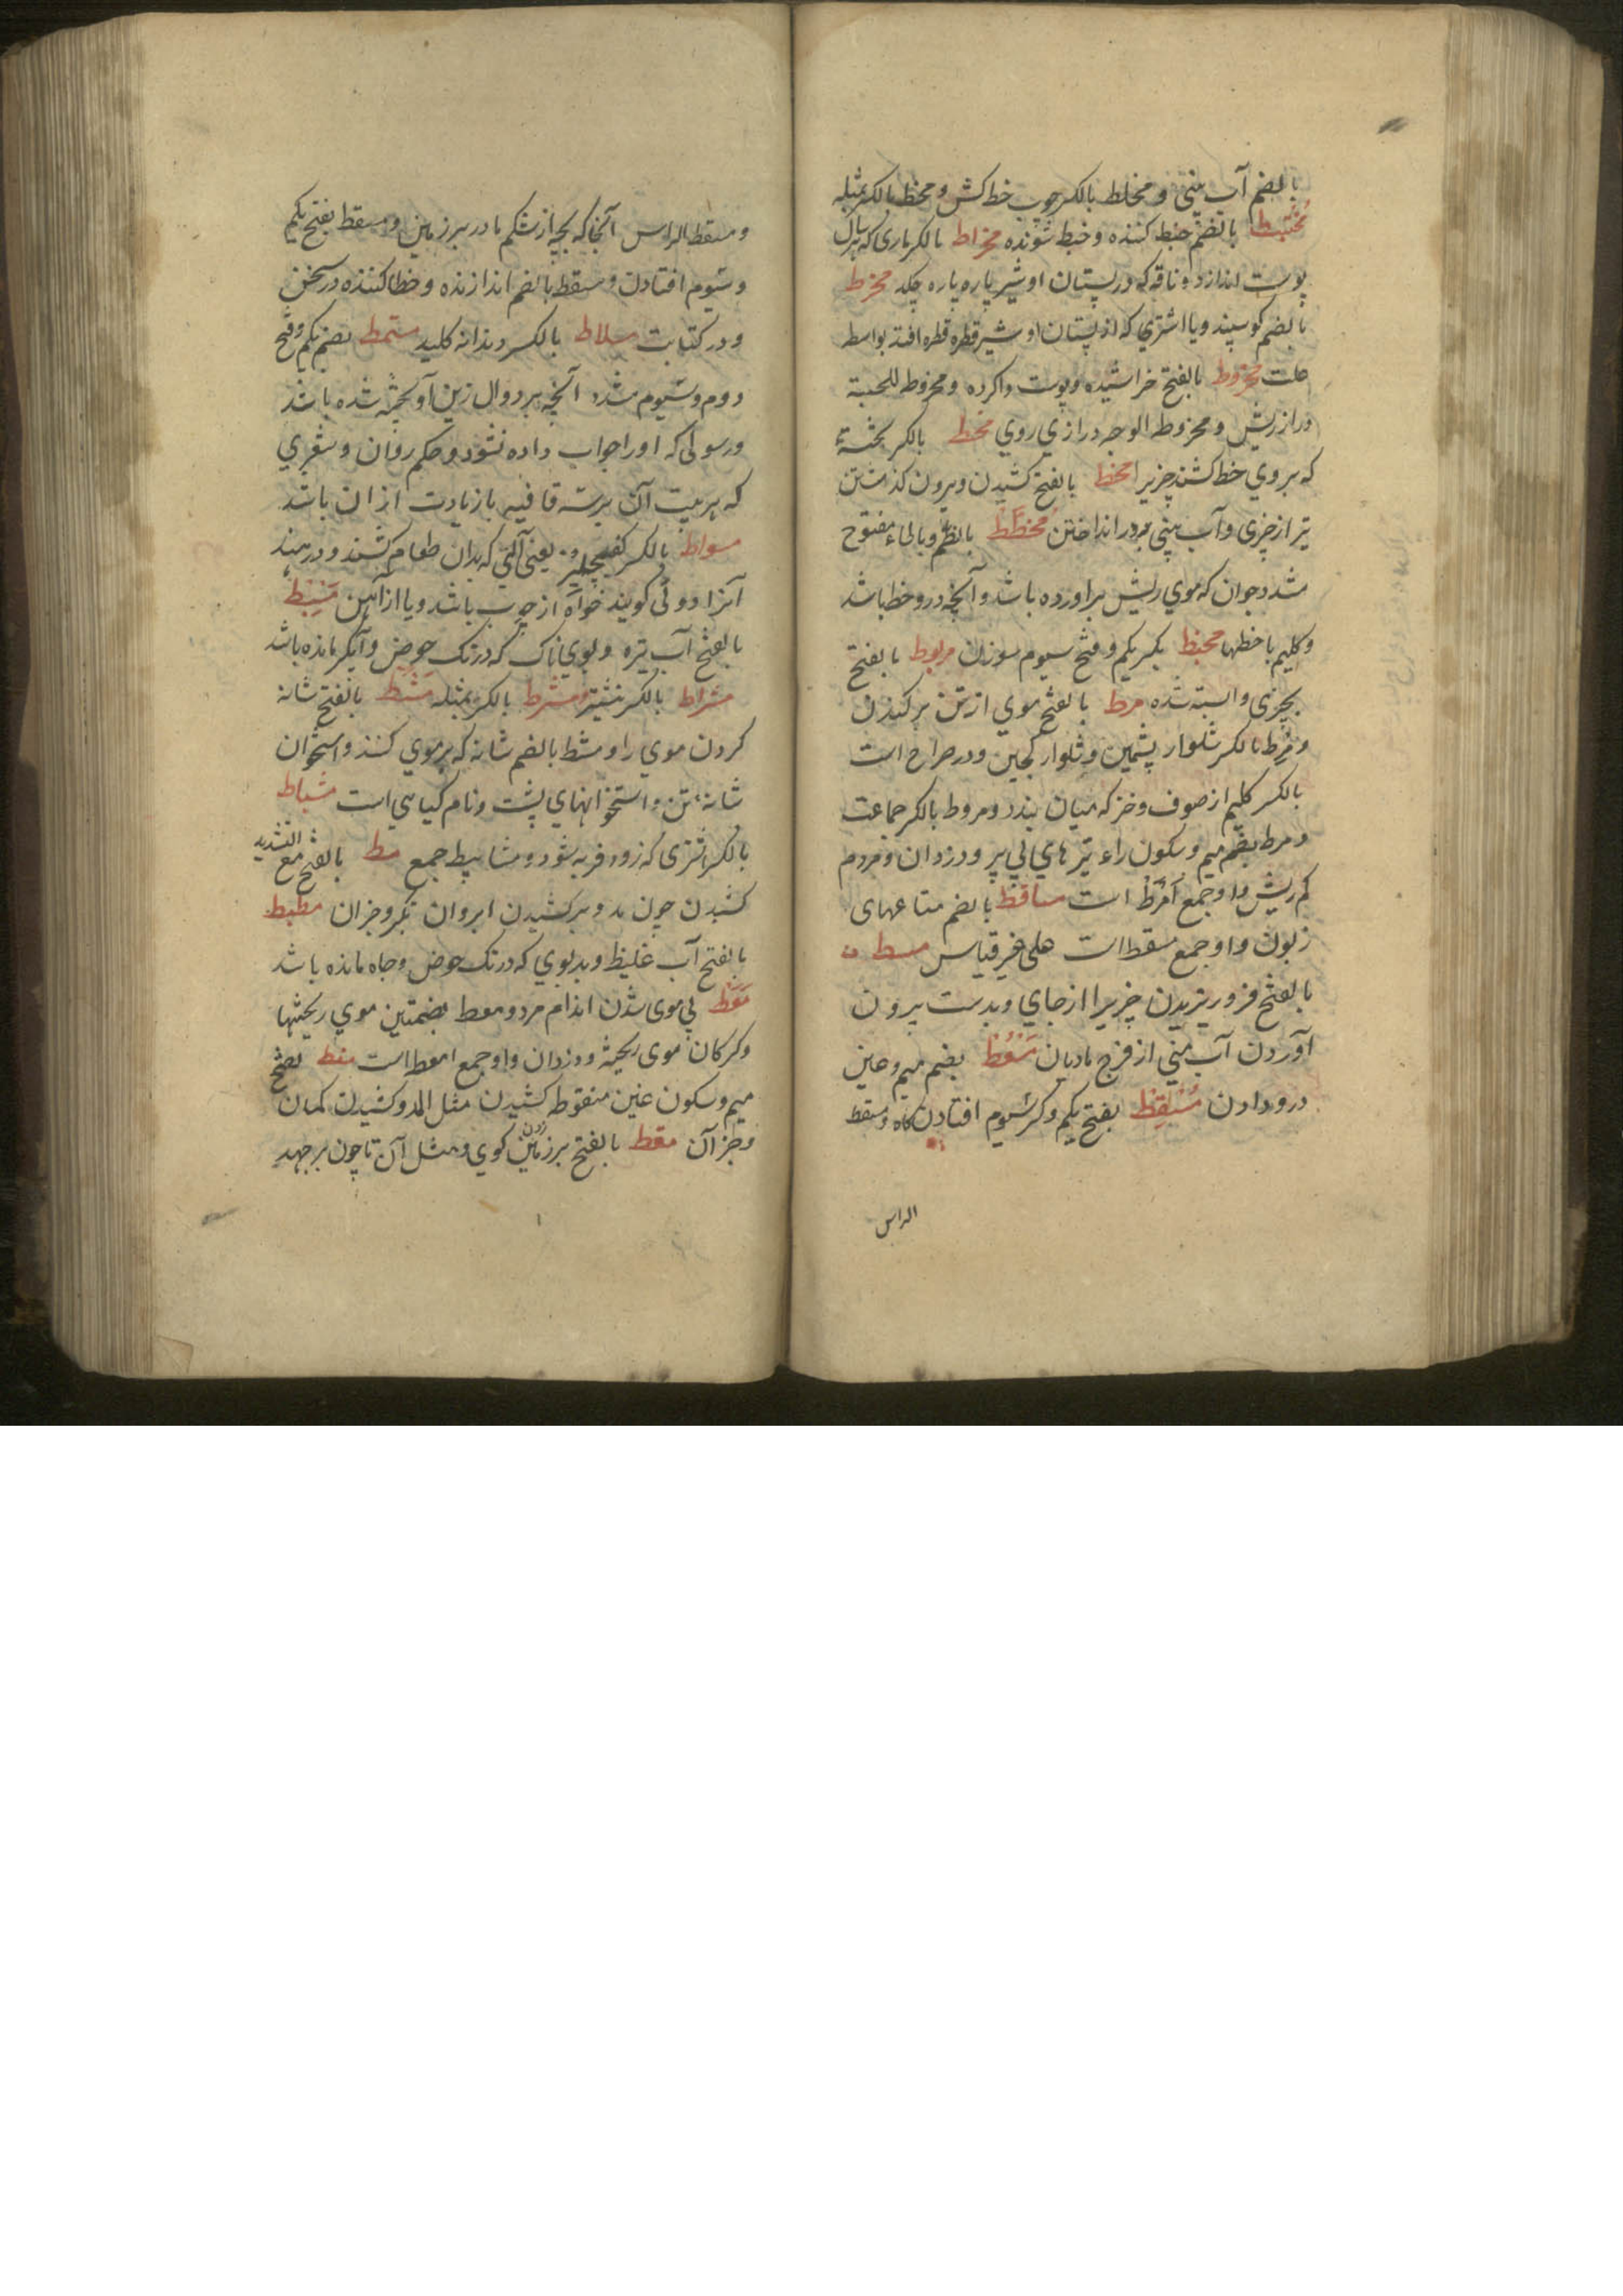 بالضم آب بینی و مخلط بالکسر چوب خط کش و مخط بالکسر بمثله
مختبط بالضم خبط کننده و خبط شونده مخراط بالکسر ماری که هر سال
پوست اندازد و ناقه که در پستان او شیر پاره پاره چکد مخرط
بالضم کوسپند و یا اشتری که از پستان او شیر قطره قطره افتد بواسطه
علت مخروط بالفتح خراشیده و پوست واکرده و مخروط اللحیة
دراز ریش و مخروط الوجه درازی روی مخط بالکسر
که بر وی خط کشند چیزیرا مخط بالفتح کشیدن و بیرون کذشتن
تیر از چیزی و آب بینی بدر انداختن مخطط بالضم و بالطاء مفتوح
شدد جوان که موی ریش براورده باشد و آنچه درو خط باشد
و کلیم با خطها مخیط بکسر یکم و فتح سیوم سوزن مربوط بالفتح
بچیزی وابسته شده مرط بالفتح موی از تن برکندن
و مرط بالکسر شلوار پشمین و شلوار کجین و در صراح است
بالکسر کلیم از صوف و خز که میان بندد و مروط بالکسر جماعت
و مرط بضم میم و سکون راء تیر های بی پر و دزدان و مردم
کم ریش و او جمع امرط است مساقط بالضم متاعهای
زبون و او جمع مسقط است علی غیر قیاس مسط
بالفتح فرو ریزیدن چیزیرا از جای و بدست بیرون
آوردن آب منی از فرج مادیان مسعط بضم میم و عین
درودادن مسقط بفتح یکم و کسر سیوم افتادن کاه و مسقط
الراس
و مسقط الراس آنجا که بچه از شکم مادر بر زمین و مسقط بفتح یکم
و سیوم افتادن و مسقط بالضم اندازنده و خطا کننده در سخن
و در کتابت مسلاط بالکسر دندانه کلید مسمط بضم یکم و فتح
دوم و سیوم مشدد آنچه بر دوال زین آویخته شده باشد
و رسولی که او را جواب داده نشود و حکم روان و شعری
که هر بیت آن بر سه قافیه بازیادت ازان باشد
مسواط بالکسر کفچلیز و یعنی آلتی که بدان طعام کشند و در هند
آنرا دوئی کویند خواه از چوب باشد و یا از آهن مسیط
بالفتح آب تیره و بوی ناک که در تک حوض و آبگیر مانده باشد
مشراط بالکسر نیشتر مشرط بالکسر بمثله مشط بالفتح شانه
کردن موی را و مشط بالضم شانه که بر موی کنند و استخوان
شانه تن و استخوانهای پشت و نام کیاهی است مشیاط
بالکسر اشتری که زود فربه شود و مشاییط جمع مط بالفتح مع التشدید
کشیدن چون مد و برکشیدن ابروان بتکبر و جزان مطیط
بالفتح آب غلیظ و بدبوی که در تک حوض و جاه مانده باشد
معط بی موی شدن اندام مرد و معط بضمتین موی ریختها
و کرکان موی ریخته و دزدان و او جمع امعط است مغط بفتح
میم و سکون غین منقوطه کشیدن مثل المد و کشیدن کمان
و جز آن مقط بالفتح بر زمین زدن کوی و مثل آن تا چون برجهد